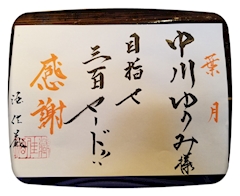 葉月
中川ゆりみ様
目指せ
三百ヤード!!
感謝